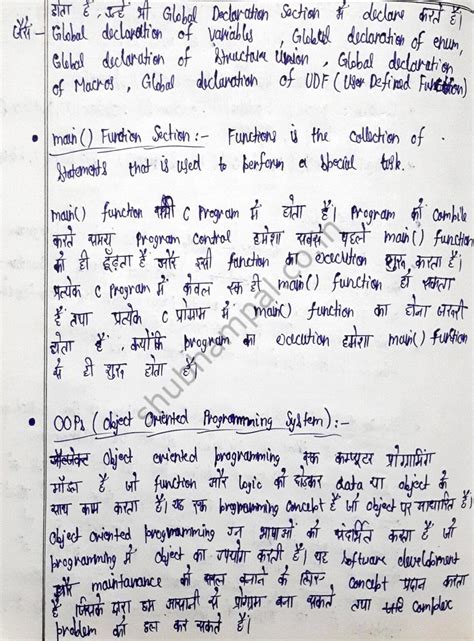 होता है, उन्हें भी Global Declaration Section में declare करते हैं।
जैसे:- Global declaration of variables, Global declaration of enum,
Global declaration of Structure Union, Global declaration
of Macros, Global declaration of UDF (User Defined Function)
• main() Function Section:- Functions is the collection of
Statements that is used to perform a special task.
main() function सभी C Program में होता है। Program को Compile
करते समय Program Control हमेशा सबसे पहले main() function
को ही ढूँढ़ता है और इसी function का execution शुरू करता है।
प्रत्येक C Program में केवल एक ही main() function हो सकता
है तथा प्रत्येक C प्रोग्राम में main() function का होना जरुरी
होता है, क्योंकि program का execution हमेशा main() function
से ही शुरू होता है।
• OOPs (Object Oriented Programming System):-
Object oriented programming एक कम्प्यूटर प्रोग्रामिंग
मॉडल है, जो function और logic को छोडकर data या object के
साथ काम करता है। यह एक programming concept है जो object पर आधारित है।
Object oriented programming उन भाषाओं को संदर्भित करता है जो
programming में object का उपयोग करती है। यह Software development
और maintanance को सरल बनाने के लिए concept प्रदान करता
है जिसके द्वारा हम आसानी से प्रोग्राम बना सकते तथा complex
problem को हल कर सकते हैं।
shubhampal.com